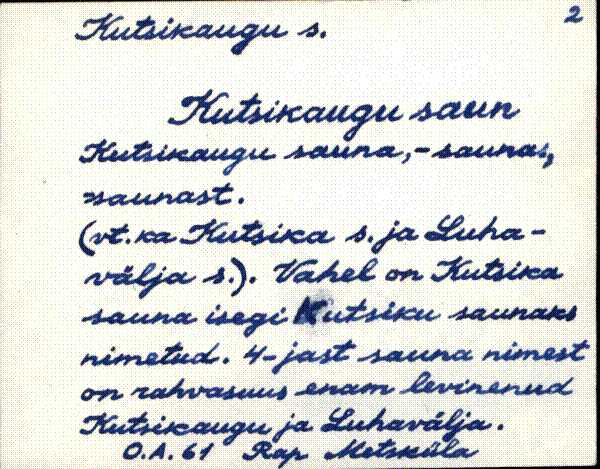 Kutsikaugu s.
2
Kutsikaugu saun
Kutsikaugu sauna, -saunas,
-saunast.
(vt. ka Kutsika s. ja Luha-
välja s.). Vahel on Kutsika
sauna isegi Kutsiku saunaks
nimetud. 4-jast sauna nimest
on rahvasuus enam levinenud
Kutsikaugu ja Luhavälja.
O.A. 61 Rap Metsküla